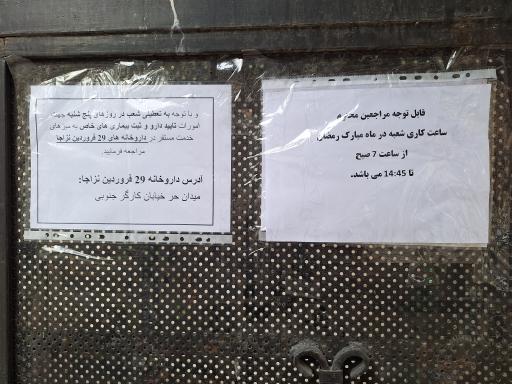 قابل توجه مراجعین محترم
ساعت کاری شعبه در ماه مبارک رمضان
از ساعت 7 صبح
تا 14:45 می باشد.
و با توجه به تعطیلی شعب در روزهای پنج شنبه جهت
امورات تایید دارو و ثبت بیماری های خاص به میزهای
خدمت مستقر در داروخانه های 29 فروردین نزاجا
مراجعه فرمایید
آدرس داروخانه 29 فروردین نزاجا:
میدان حر خیابان کارگر جنوبی